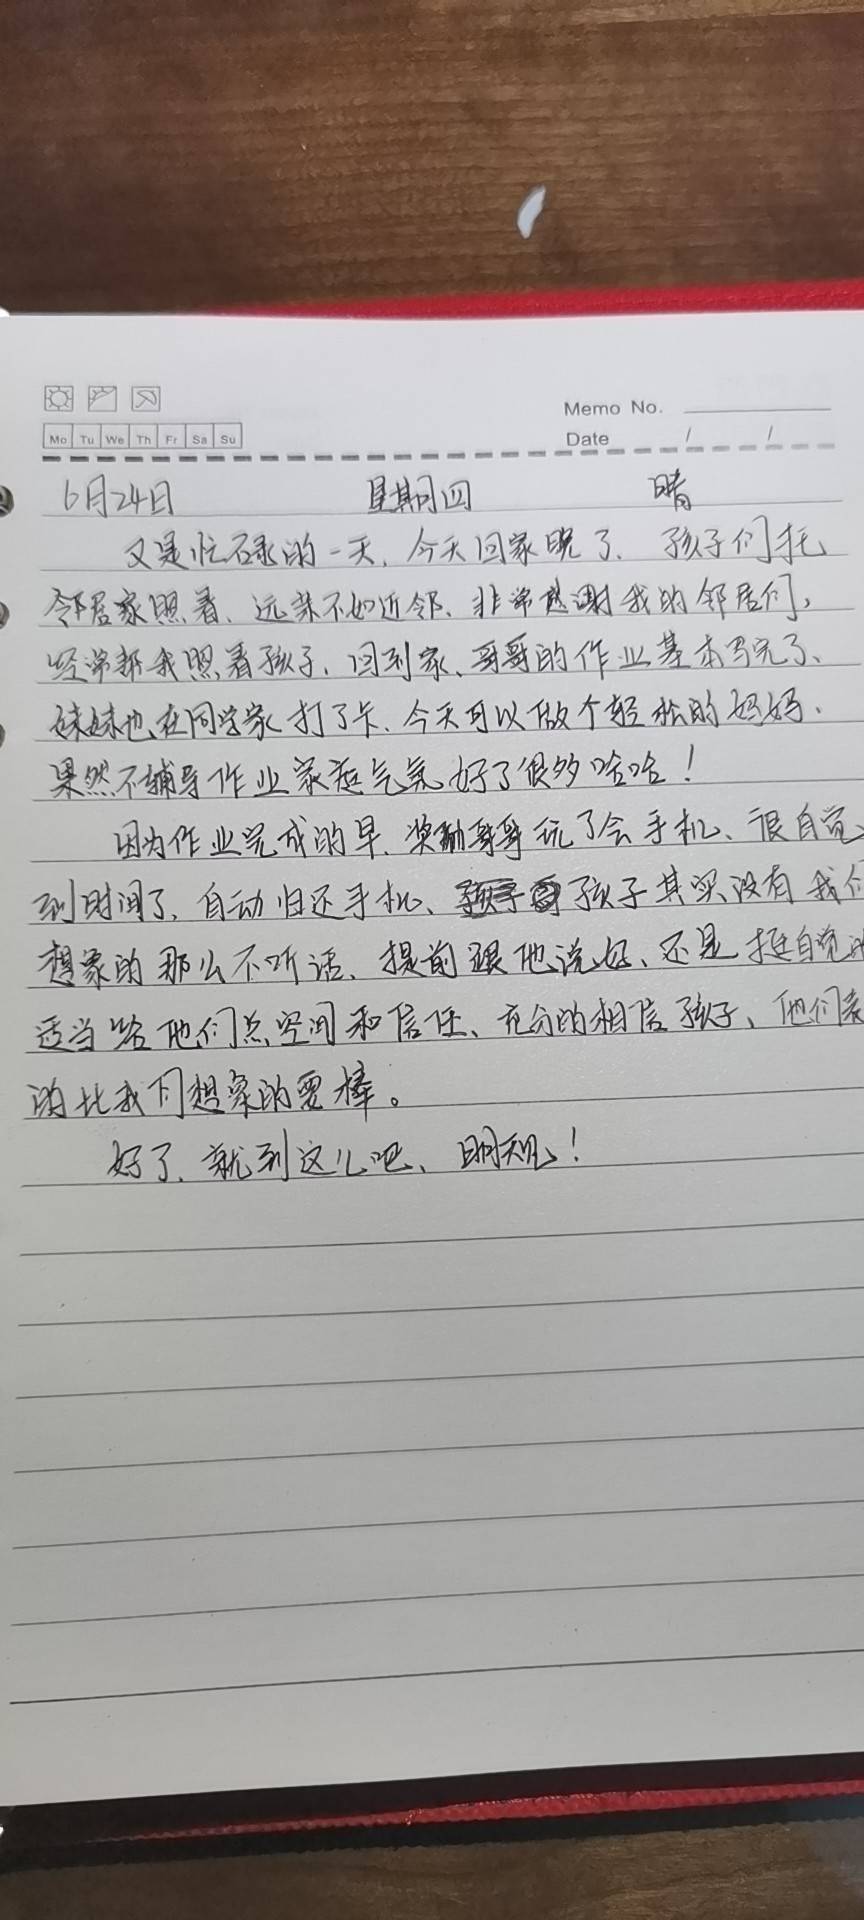 Memo No.
Mo Tu We Th Fr Sa Su
Date / /
6月24日 星期四 晴
又是忙碌的一天、今天回家晚了、孩子们托
邻居家照看、远亲不如近邻、非常感谢我的邻居们，
经常帮我照看孩子，回到家、哥哥的作业基本写完了、
妹妹也在同学家打了卡、今天可以做个轻松的妈妈、
果然不辅导作业家庭气氛好了很多哈哈！
因为作业完成的早、奖励哥哥玩了会手机、很自觉、
到时间了、自动归还手机、孩子其实没有我们
想象的那么不听话、提前跟他说好、还是挺自觉的
适当给他们点空间和信任、充分的相信孩子、他们表
的比我们想象的要棒。
好了、就到这儿吧、明天见！